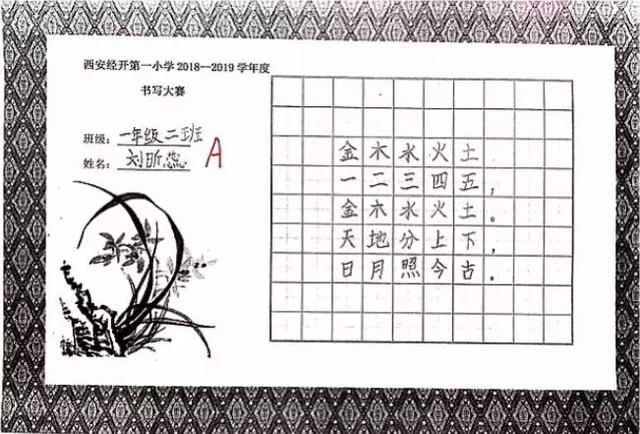 西安经开第一小学2018--2019学年度
书写大赛
班级：一年级二班
姓名：刘昕蕊
A
金木水火土
一二三四五，
金木水火土。
天地分上下，
日月照今古。